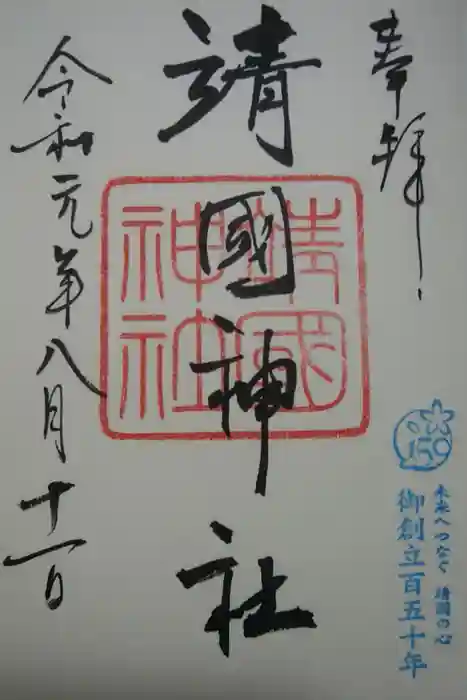 奉拝
150
未来へつなぐ 靖國の心
御創立百五十年
靖國神社
靖國神社
令和元年八月十一日